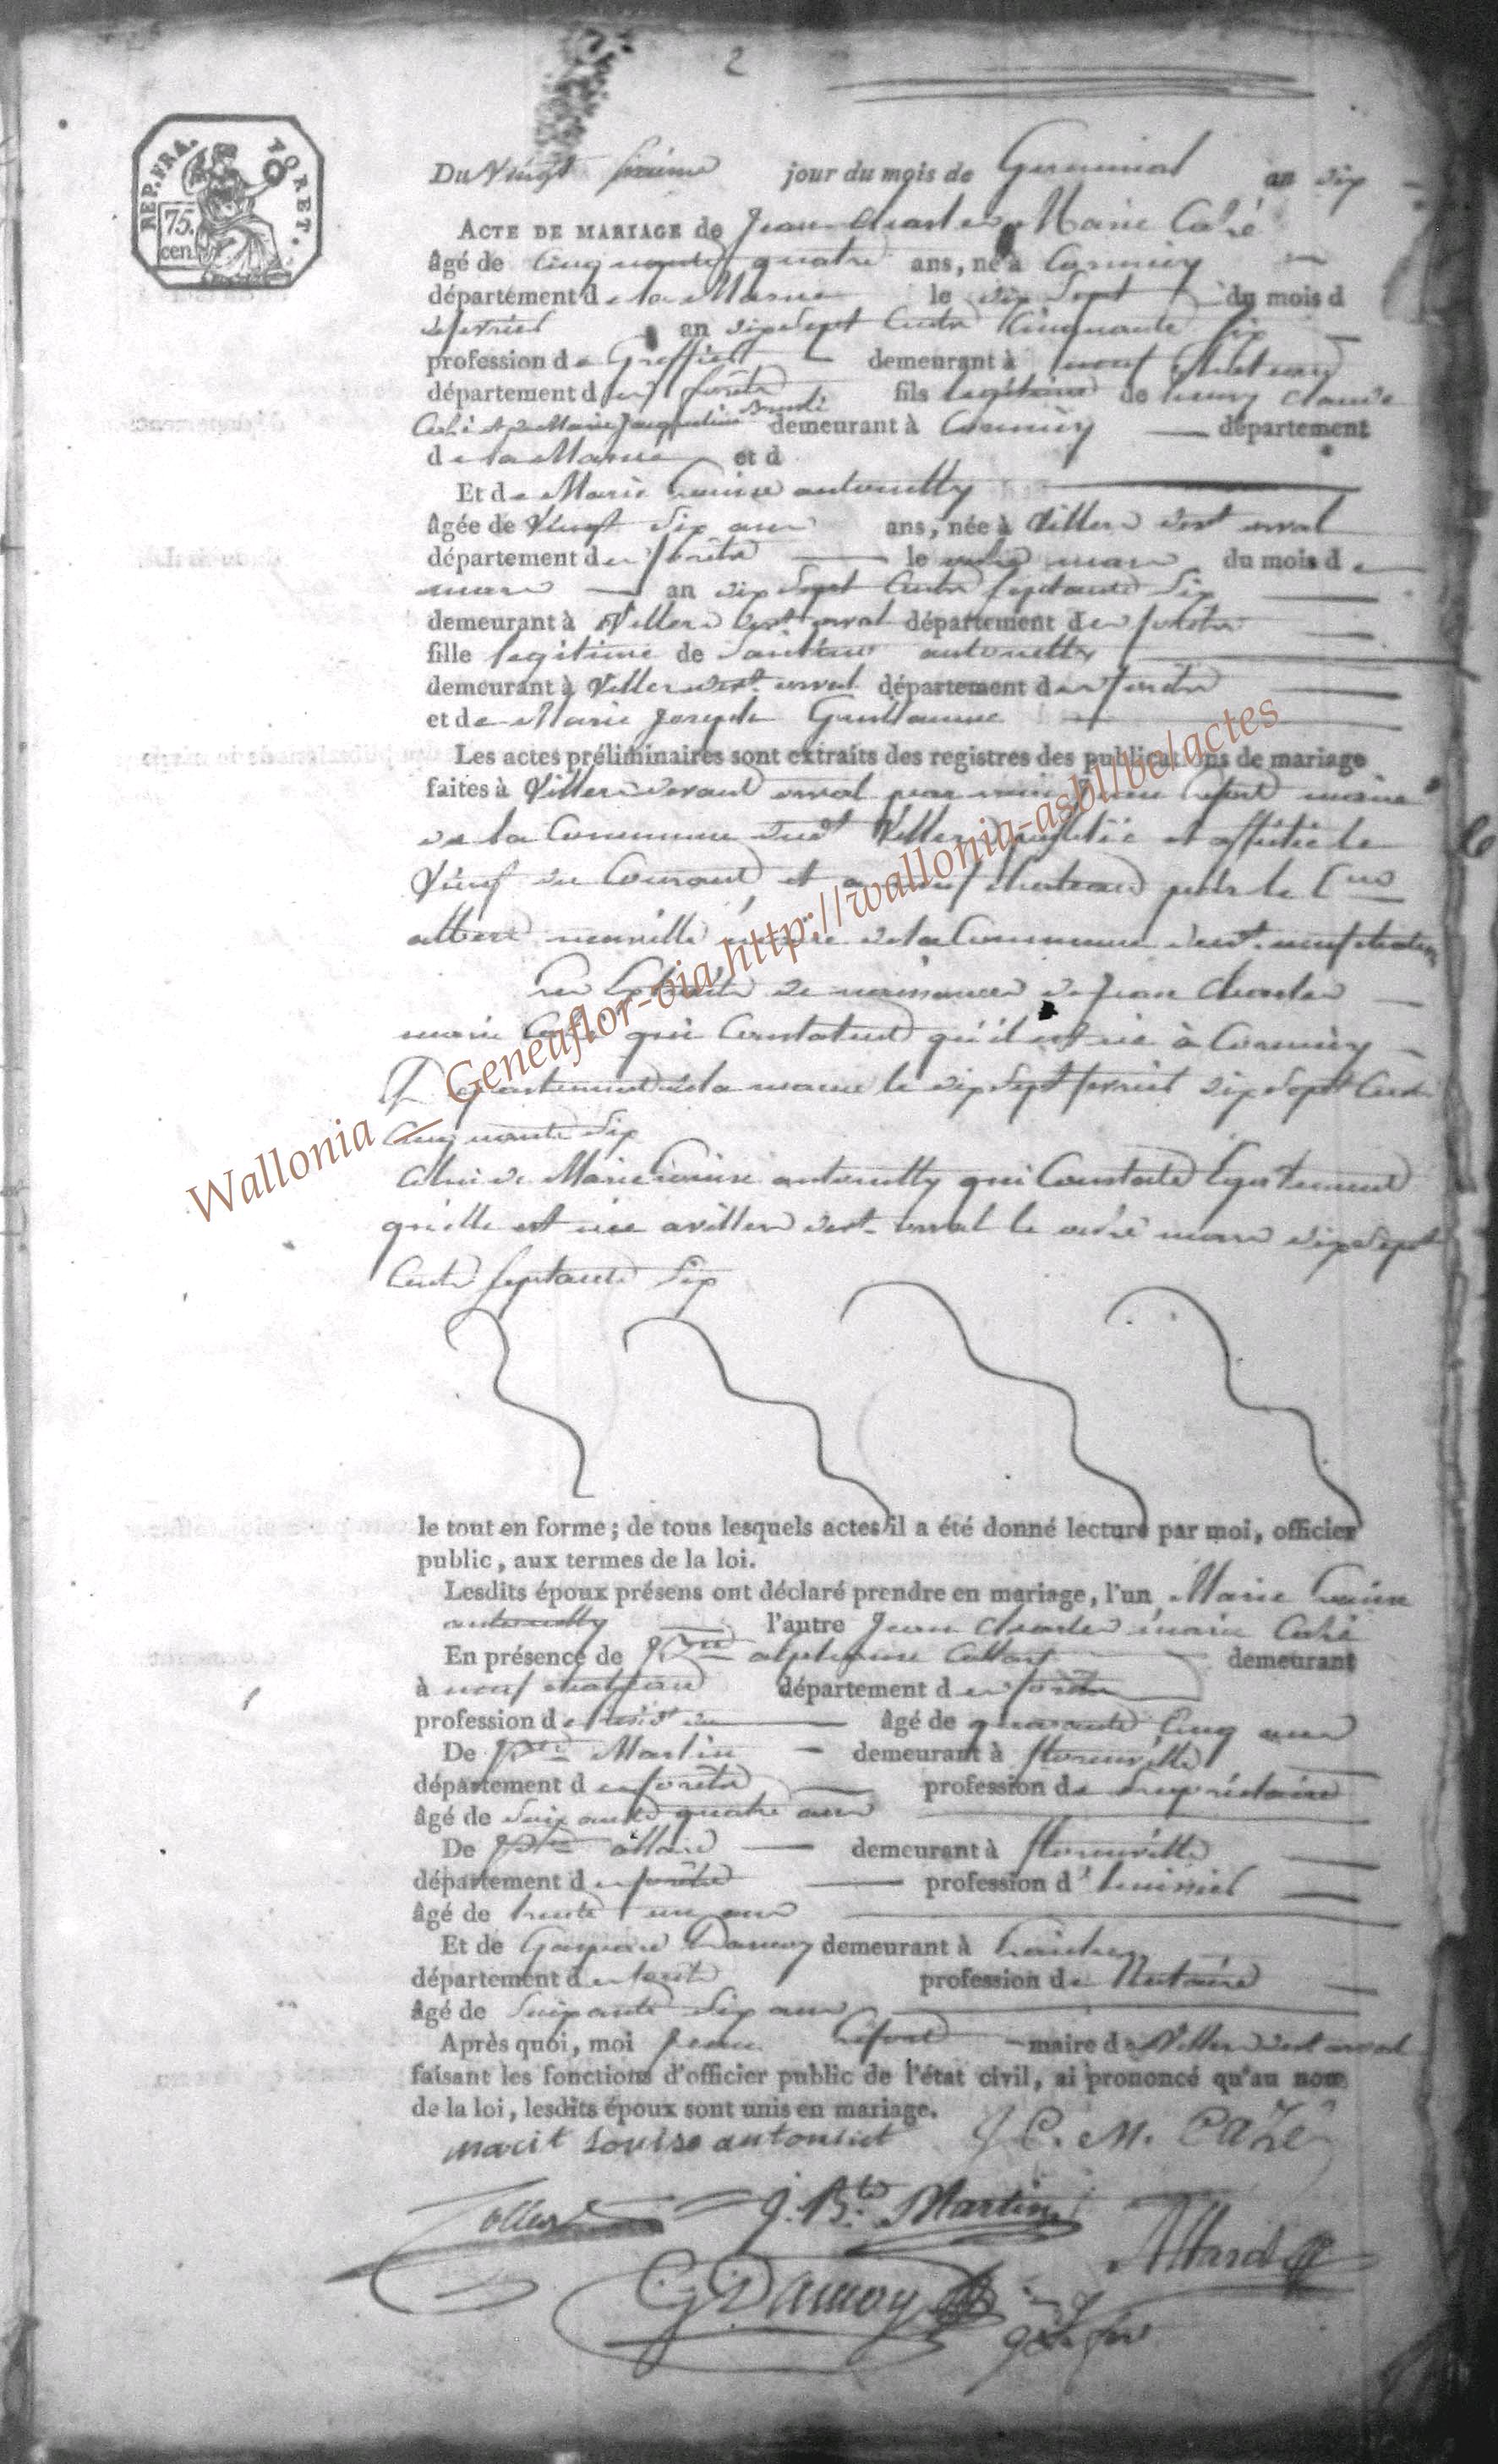 2
REP. FRA. TORET.
75.
cen.
Du Vingt jour du mois de Germinal an dix
ACTE DE MARIAGE de Jean Charles Marie Cazé
âgé de Cinquante quatre ans, né à Cormicy
département de la Marne le dix Sept du mois d
de fevrier an dix Sept Cents Cinquante Six
profession de Greffier demeurant à neuf Chateau
département des forêts fils legitime de henry Claude
Cazé et de Marie Jacqueline demeurant à Cormicy département
de la Marne et d
Et de Marie Louise antonetty
âgée de Vingt Six ans ans, née à Villers dvt orval
département des forêts le mars du mois de
mars an dix Sept Cents Septante Six
demeurant à Villers dvt orval département des forêts
fille legitime de antonetty
demeurant à Villers dvt orval département des forêts
et de Marie Joseph Guillaume
Les actes préliminaires sont extraits des registres des publications de mariage
faites à Villers devant orval par moi Jean Lefort maire
de la Commune dudt Villers publiée et affichée le
Neuf du Courant et a neuf chateau par le
albert maire de la Commune dudt neufchateau
Les Extraits de naissances de Jean Charles
marie Cazé qui Constatent qu'il est né à Cormicy
Departement de la marne le dix Sept fevrier dix Sept Cents
Cinquante Six
Celui de Marie Louise antonetty qui Constate Egalement
qu'elle est née a villers dvt orval le mars dix Sept
Cents Septante Six
le tout en forme; de tous lesquels actes il a été donné lecture par moi, officier
public, aux termes de la loi.
Lesdits époux présens ont déclaré prendre en mariage, l'un Marie Louise
antonetty l'autre Jean Charles marie Cazé
En présence de alphonse Collart demeurant
à neuf chateau département des forêts
profession de âgé de quarante Cinq ans
De Martin demeurant à florenville
département des forêts profession de propriétaire
âgé de Soixante quatre ans
De allard demeurant à florenville
département des forêts profession d'huissier
âgé de trente un ans
Et de Gaspard Damoy demeurant à
département des forêts profession de Notaire
âgé de Soixante Six ans
Après quoi, moi Jean Lefort maire de Villers dvt orval
faisant les fonctions d'officier public de l'état civil, ai prononcé qu'au nom
de la loi, lesdits époux sont unis en mariage.
Louise antoniet J. C. M. CAZé
J. Bte Martin
Allard
G Damoy
Wallonia _ Geneaflor-via http://wallonia-asbl/bc/actes